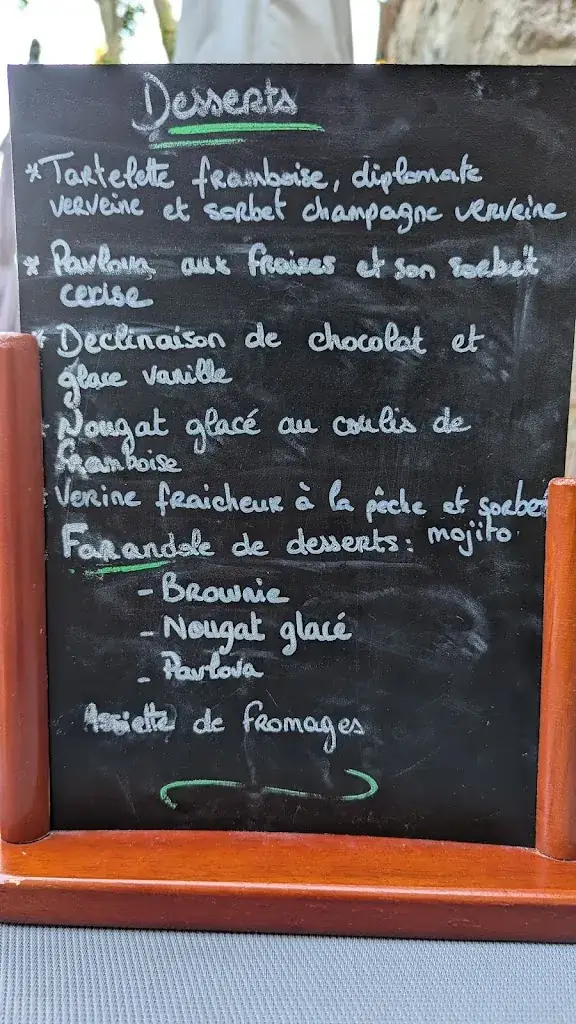 Desserts
* Tartelette framboise, diplomate
verveine et sorbet champagne verveine
* Pavlova aux fraises et son sorbet
cerise
* Declinaison de chocolat et
glace vanille
Nougat glacé au coulis de
framboise
Verine fraicheur à la pêche et sorbet
mojito.
Farandole de desserts:
- Brownie
- Nougat glacé
- Pavlova
Assiette de fromages